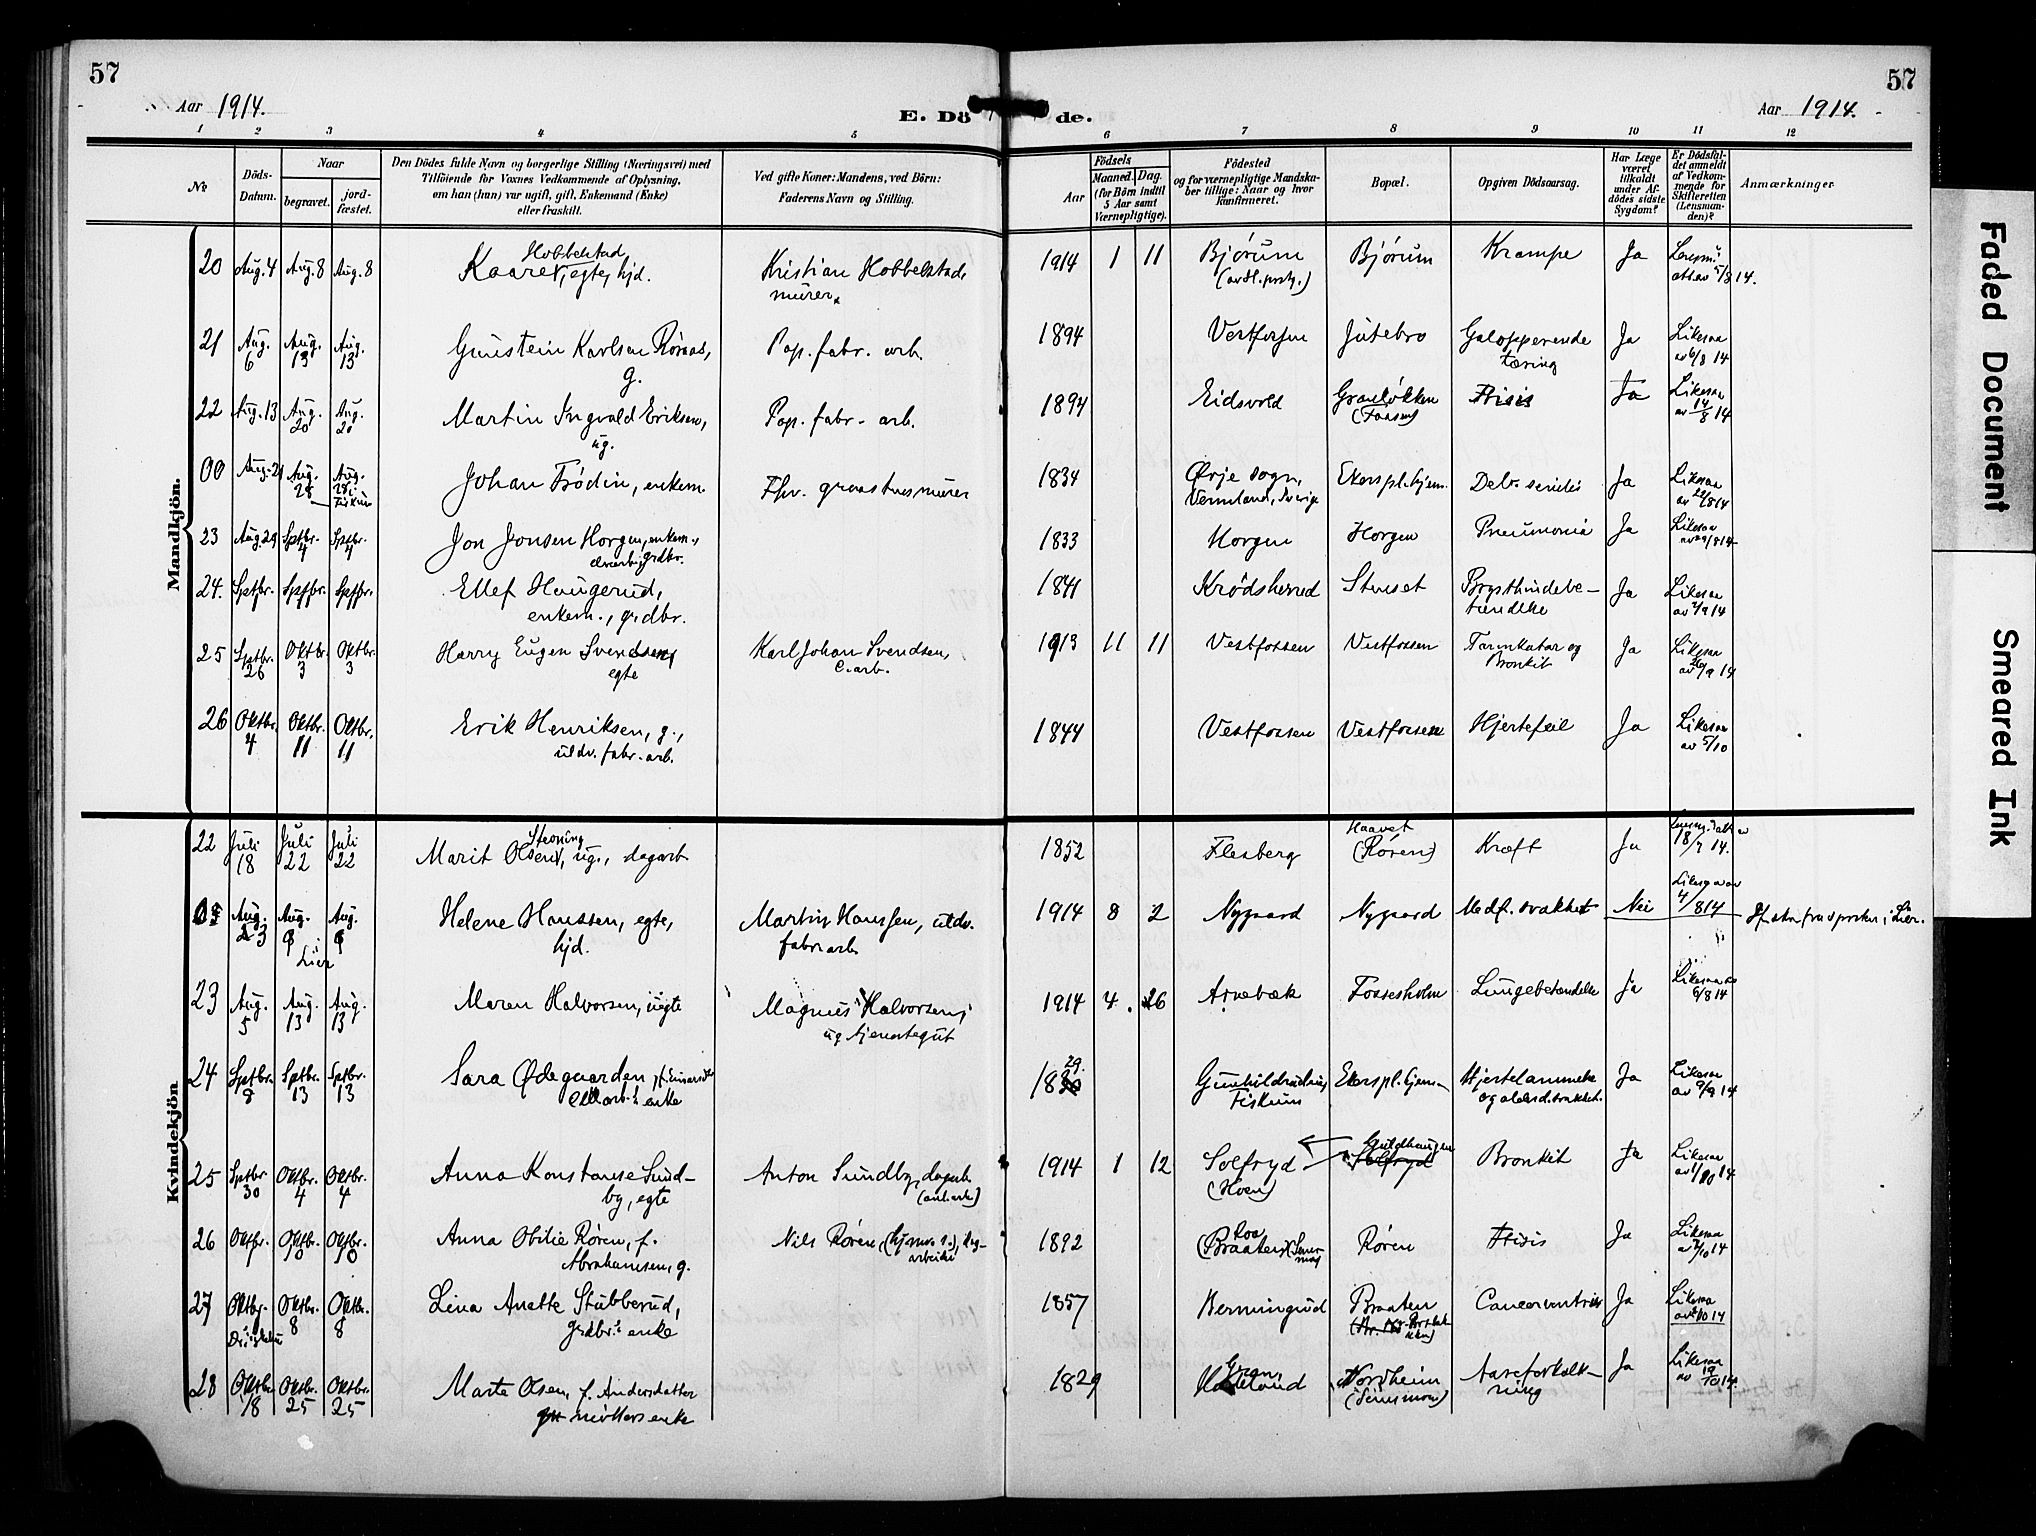 57
57
Aar 1914.
E. Dö de.
Aar 1914.
1 2 3 4 5 6 7 8 9 10 11 12
№
Döds-Datum.
Naar
begravet.
jord-fæstet.
Den Dödes fulde Navn og borgerlige Stilling (Næringsvei) med
Tilföiende for Voxnes Vedkommende af Oplysning,
om han (hun) var ugift, gift, Enkemand (Enke)
eller fraskilt.
Ved gifte Koner: Mandens, ved Börn:
Faderens Navn og Stilling.
Födsels
Aar
Maaned. Dag.
(for Börn indtil
5 Aar samt
Værnepligtige).
Födested
og for værnepligtige Mandska-
ber tillige: Naar og hvor
konfirmeret.
Bopæl.
Opgiven Dödsaarsag.
Har Læge
været
tilkaldt
under Af-
dödes sidste
Sygdom?
Er Dödsfal-
det anmeldt
af Vedkom-
mende for
Skifteretten
(Lensman-
den)?
Anmærkninger
Mandkjön.
20 Aug. 4 Aug. 8 Aug. 8 Kaare Hobbelstad, egte, hjd. Kristian Hobbelstad, murer 1914 1 11 Bjørum Bjørum Krampe Ja 5/8 14.
21 Aug. 6 Aug. 13 Aug. 13 Gunstein Karlsen Røraas, g. Pap. fabr. arb. 1894 Vestfossen Jutebro Galopperende tæring Ja Likesaa av 6/8 14
22 Aug. 13 Aug. 20 Aug. 20 Martin Ingvald Eriksen, ug. Pap. fabr. arb. 1894 Eidsvold Granløkken Ftisis Ja Likesaa av 14/8 14
00 Aug. 21 Aug. 28 Aug. 28 i Fiskum Johan Frødin, enkem. Fhv. graastensmurer 1834 Øvje sogn, Vermland, Sverige Ekerspl. hjem Deb. senilis Ja Likesaa av 22/8 14
23 Aug. 29 Sptbr. 4 Sptbr. 4 Jon Jonsen Horgen, enkem., grdbr. 1833 Horgen Horgen Pneumonia Ja Likesaa
24. Sptbr. Sptbr. Sptbr. Ellef Haugerud, enkem., grdbr. 1841 Krødsherred Stenset Brysthindebe-tændelse Ja Likesaa
25 Sptbr. 26 Oktbr. 3 Oktbr. 3 Harry Eugen Svendsen, egte Karl Johan Svendsen, c. arb. 1913 11 11 Vestfossen Vestfossen Tarmkatar og Bronkit Ja Likesaa av 26/9 14
26 Oktbr. 4 Oktbr. 11 Oktbr. 11 Erik Henriksen, g., uldv. fabr. arb. 1844 Vestfossen Vestfossen Hjertefeil Ja Likesaa av 5/10
Kvindekjön
22 Juli 18 Juli 22 Juli 22 Marit Olsen, ug., dagarb. 1852 Flesberg Haavet (Røren) Kræft Ja 18/7 14.
Aug. 3 Aug. Lier Aug. Helene Hanssen, egte, hjd. Martin Hanssen, uldv. fabr. arb. 1914 8 2 Nygaard Nygaard Medf. svakhet Nei 4/8 14 Lier.
23 Aug. 5 Aug. 13 Aug. 13 Maren Halvorsen, uegte Magnus Halvorsen, ug. tjenestegut 1914 4 26 Arnebæk Fossesholm Lungebetændelse Ja Likesaa 6/8 14
24 Sptbr. 8 Sptbr. 13 Sptbr. 13 Sara Ødegaarden, enke 1829. Gunhildrud, Fiskum Ekerspl. hjem Hjertelammelse og alderd. svakhet. Ja Likesaa av 9/9 14
25 Sptbr. 30 Oktbr. 4 Oktbr. 4 Anna Konstanse Sund-by, egte Anton Sundby, dagarb. 1914 1 12 Solfryd (Hoen) Guldhaugen Solfryd Bronkit Ja Likesaa av 1/10 14
26 Oktbr. Oktbr. 10 Oktbr. 10 Anna Otilie Røren, f. Abrahamsen, g. Nils Røren, 1892 (Braaten) Røren Ftisis Ja Likesaa
27 Oktbr. Oktbr. 8 Oktbr. 8 Lina Anette Stubberud, grdbr.s enke 1857 Bermingrud Braaten Cancer ventriculi Ja Likesaa
28 Oktbr. 18 Oktbr. 25 Oktbr. 25 Marte Olsen, f. Andersdatter møllers enke 1829 Gran, Hadeland Nordheim Aareforkalk-ning Ja Likesaa av 19/10 14.
Faded Document
Smeared Ink